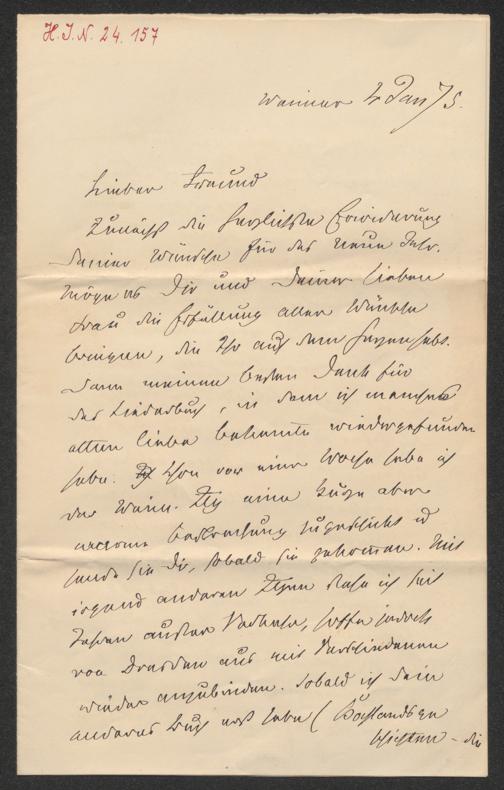 H. I. N. 24. 157
Weimar 2 Jan 75.
Lieber Freund
Zunächst die herzlichste Erwiderung
Deiner Wünsche für das neue Jahr.
Möge es Dir und Deiner lieben
Frau die Erfüllung aller Wünsche
bringen, die Ihr auf dem Herzen habt.
Dann meinen besten Dank für
das Liederbuch, in dem ich manches
alten liebe bekannte wiedergefunden
habe. Schon vor einer Woche habe ich
der Weim. Ztg eine kurze aber
warme Besprechung zugeschickt u
sende sie Dir, sobald sie gekommen. Mit
irgend anderen Ztgen stehe ich seit
Jahren außer Verkehr, hoffe jedoch
von Dresden aus mit Verschiedenen
wieder anzubinden. Sobald ich Dein
anderes Buch erst habe (
schichten – die